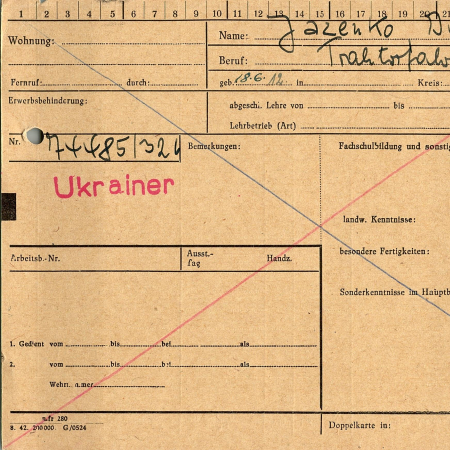 1 2 3 4 5 6 7 8 9 10 11 12 13 14 15 16 17 18 19 20 21
Wohnung:
Name: Jazenko
Beruf: Traktorfahr
Fernruf: durch:
geb. 18.6.12 in Kreis:
Erwerbsbehinderung:
abgeschl. Lehre von bis
Lehrbetrieb (Art)
Nr. 74485/324
Bemerkungen:
Fachschulbildung und sonstig
Ukrainer
landw. Kenntnisse:
Arbeitsb.-Nr.
Ausst.-
tag
Handz.
besondere Fertigkeiten:
Sonderkenntnisse im Hauptb
1. Gedient vom bis bei als
2. vom bis bei als
Wehrn
280
8. 42. 200000. G/0524
Doppelkarte in: